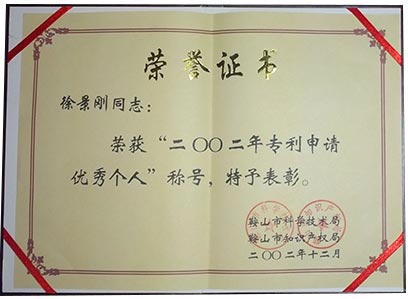 荣誉证书
徐景刚同志：
荣获“二〇〇二年专利申请
优秀个人”称号，特予表彰。
鞍山市科学技术局
鞍山市知识产权局
二〇〇二年十二月